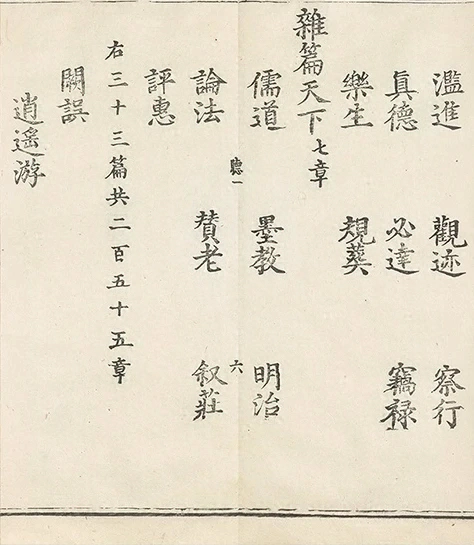 濫進 觀迹 察行
眞德 必達 竊祿
樂生 規葬
雜篇天下七章
儒道 墨教 明治
聽一 六
論法 賛老 叙莊
評惠
右三十三篇共二百五十五章
闕誤
逍遙游